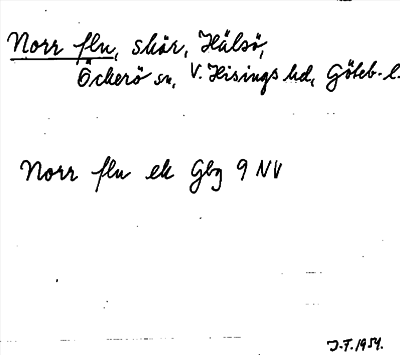 Norr flu, skär, Hälsö,
Öckerö sn, V. Hisings hd, Göteb. l.
Norr flu ek Gbg 9 NV
J.F. 1954.